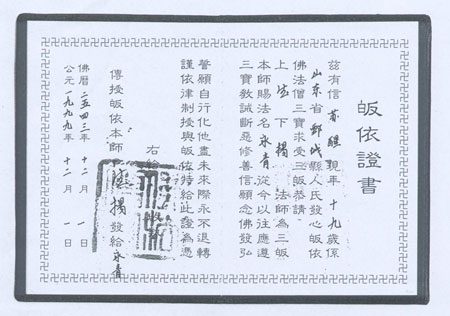 皈依證書
茲有信 現年 十九歲係
山东省 城縣人氏發心皈依
佛法僧三寶求受三皈恭請
上 下 法師為三皈
本師賜法名 永青 從今以往應遵
三寶教誡斷惡修善信願念佛發弘
誓願自行化他盡未來際永不退轉
謹依律制授與皈依持給此證為憑
右給
傳授皈依本師 發給 永青
佛曆二五四三年 十二月 一日
公元一九九九年 十二月 一日